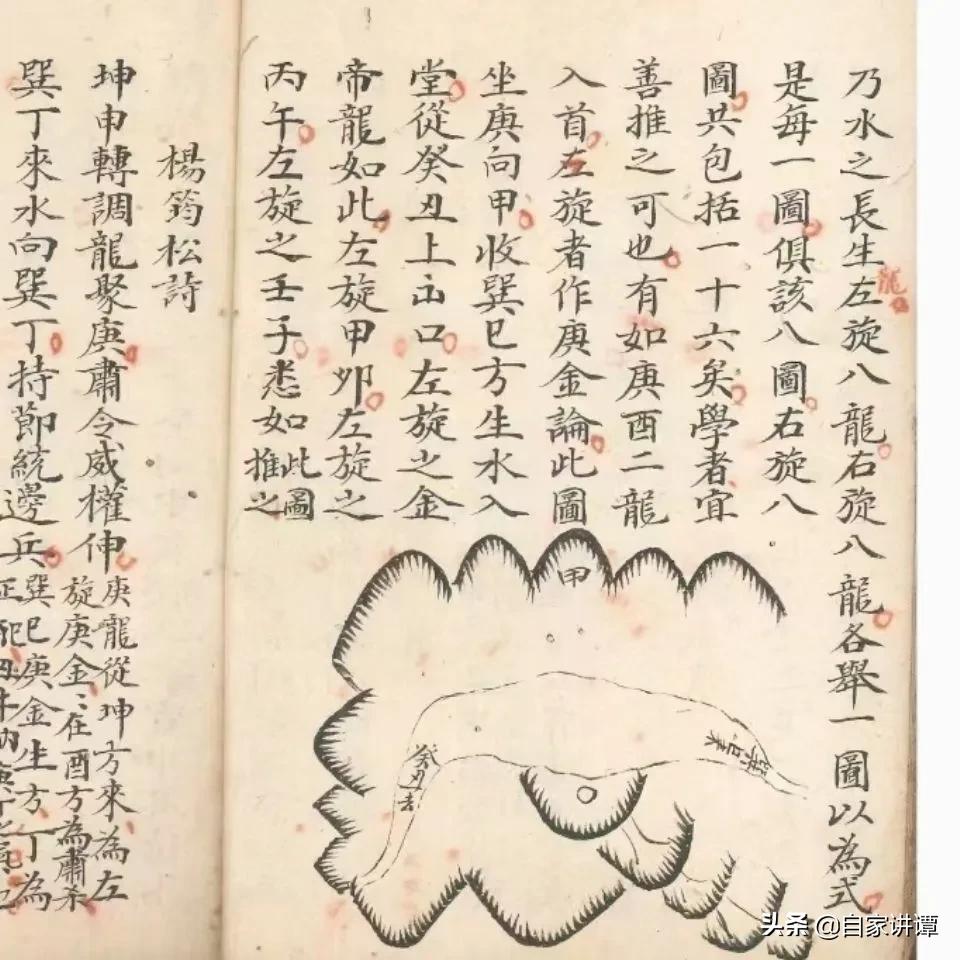 乃水之長生左旋八龍右旋八龍各舉一圖以為式
龍
是每一圖俱該八圖右旋八
圖共包括一十六矣學者宜
善推之可也有如庚酉二龍
入首左旋者作庚金論此圖
坐庚向甲收巽巳方生水入
堂從癸丑上出口左旋之金
帝龍如此左旋甲卯左旋之
丙午左旋之壬子悉如此圖
推之
甲
癸丑去
巽巳來
楊筠松詩
坤申轉調龍聚庚肅令威權伸
庚龍從坤方來為左
旋庚金金在酉方為肅殺
巽丁來水向巽丁持節統邊兵
巽巳庚金生方丁為
头条 @自家讲谭